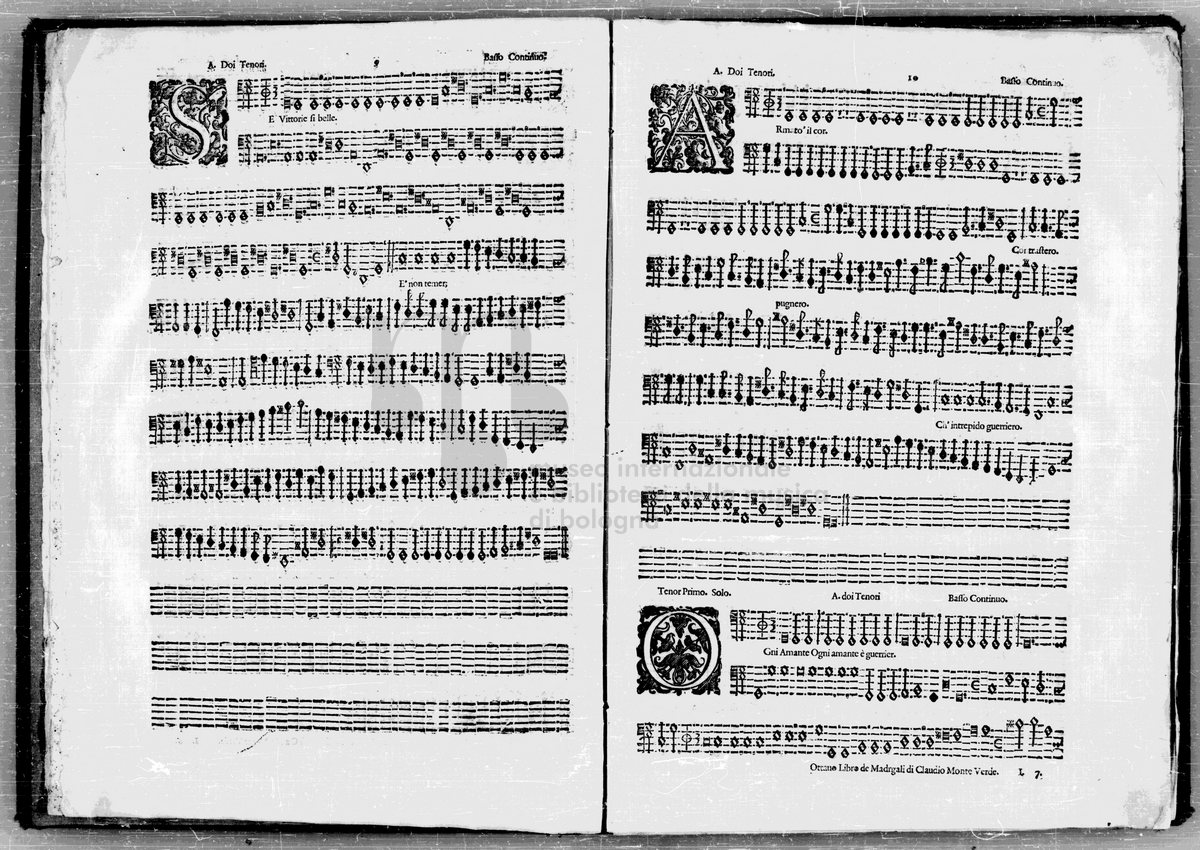 A. Doi Tenori. 9 Basso Continuo.
S
E Vittorie si belle.
E' non temer;
A. Doi Tenori. 10 Basso Continuo.
A
Rmato' il cor.
Cor trastero.
pugnero.
Ch' intrepido guerriero.
Tenor Primo. Solo. A. doi Tenori Basso Continuo.
O
Gni Amante Ogni amante è guerrier.
Ottauo Libro de Madrgali di Claudio Monte Verde. L 7.
museo internazionale
e biblioteca della musica
di bologna